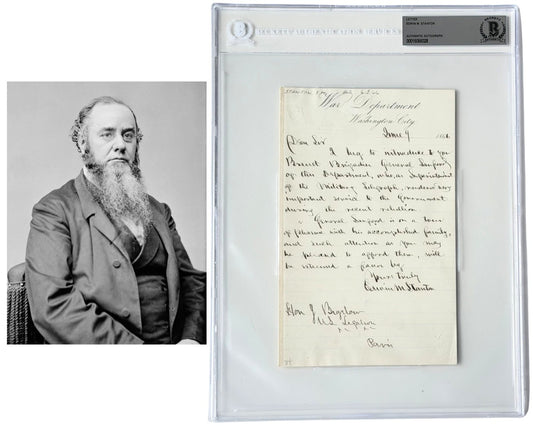 LETTER
EDWIN M. STANTON
AUTHENTIC AUTOGRAPH
BECKETT AUTHENTICATION SERVICES
War Department
Washington City
June 9 186
Dear Sir
I beg to introduce to you
Brevet Brigadier General
of this Department, who, as Superintendent
of the Military Telegraph, rendered very
important service to the Government
during the recent rebellion.
General is on a tour
of pleasure with his accomplished family,
and such attention as you may
be pleased to afford them, will
be esteemed a favor by
Yours truly
Edwin M Stanton
Hon J Bigelow
U.S. Legation
Paris